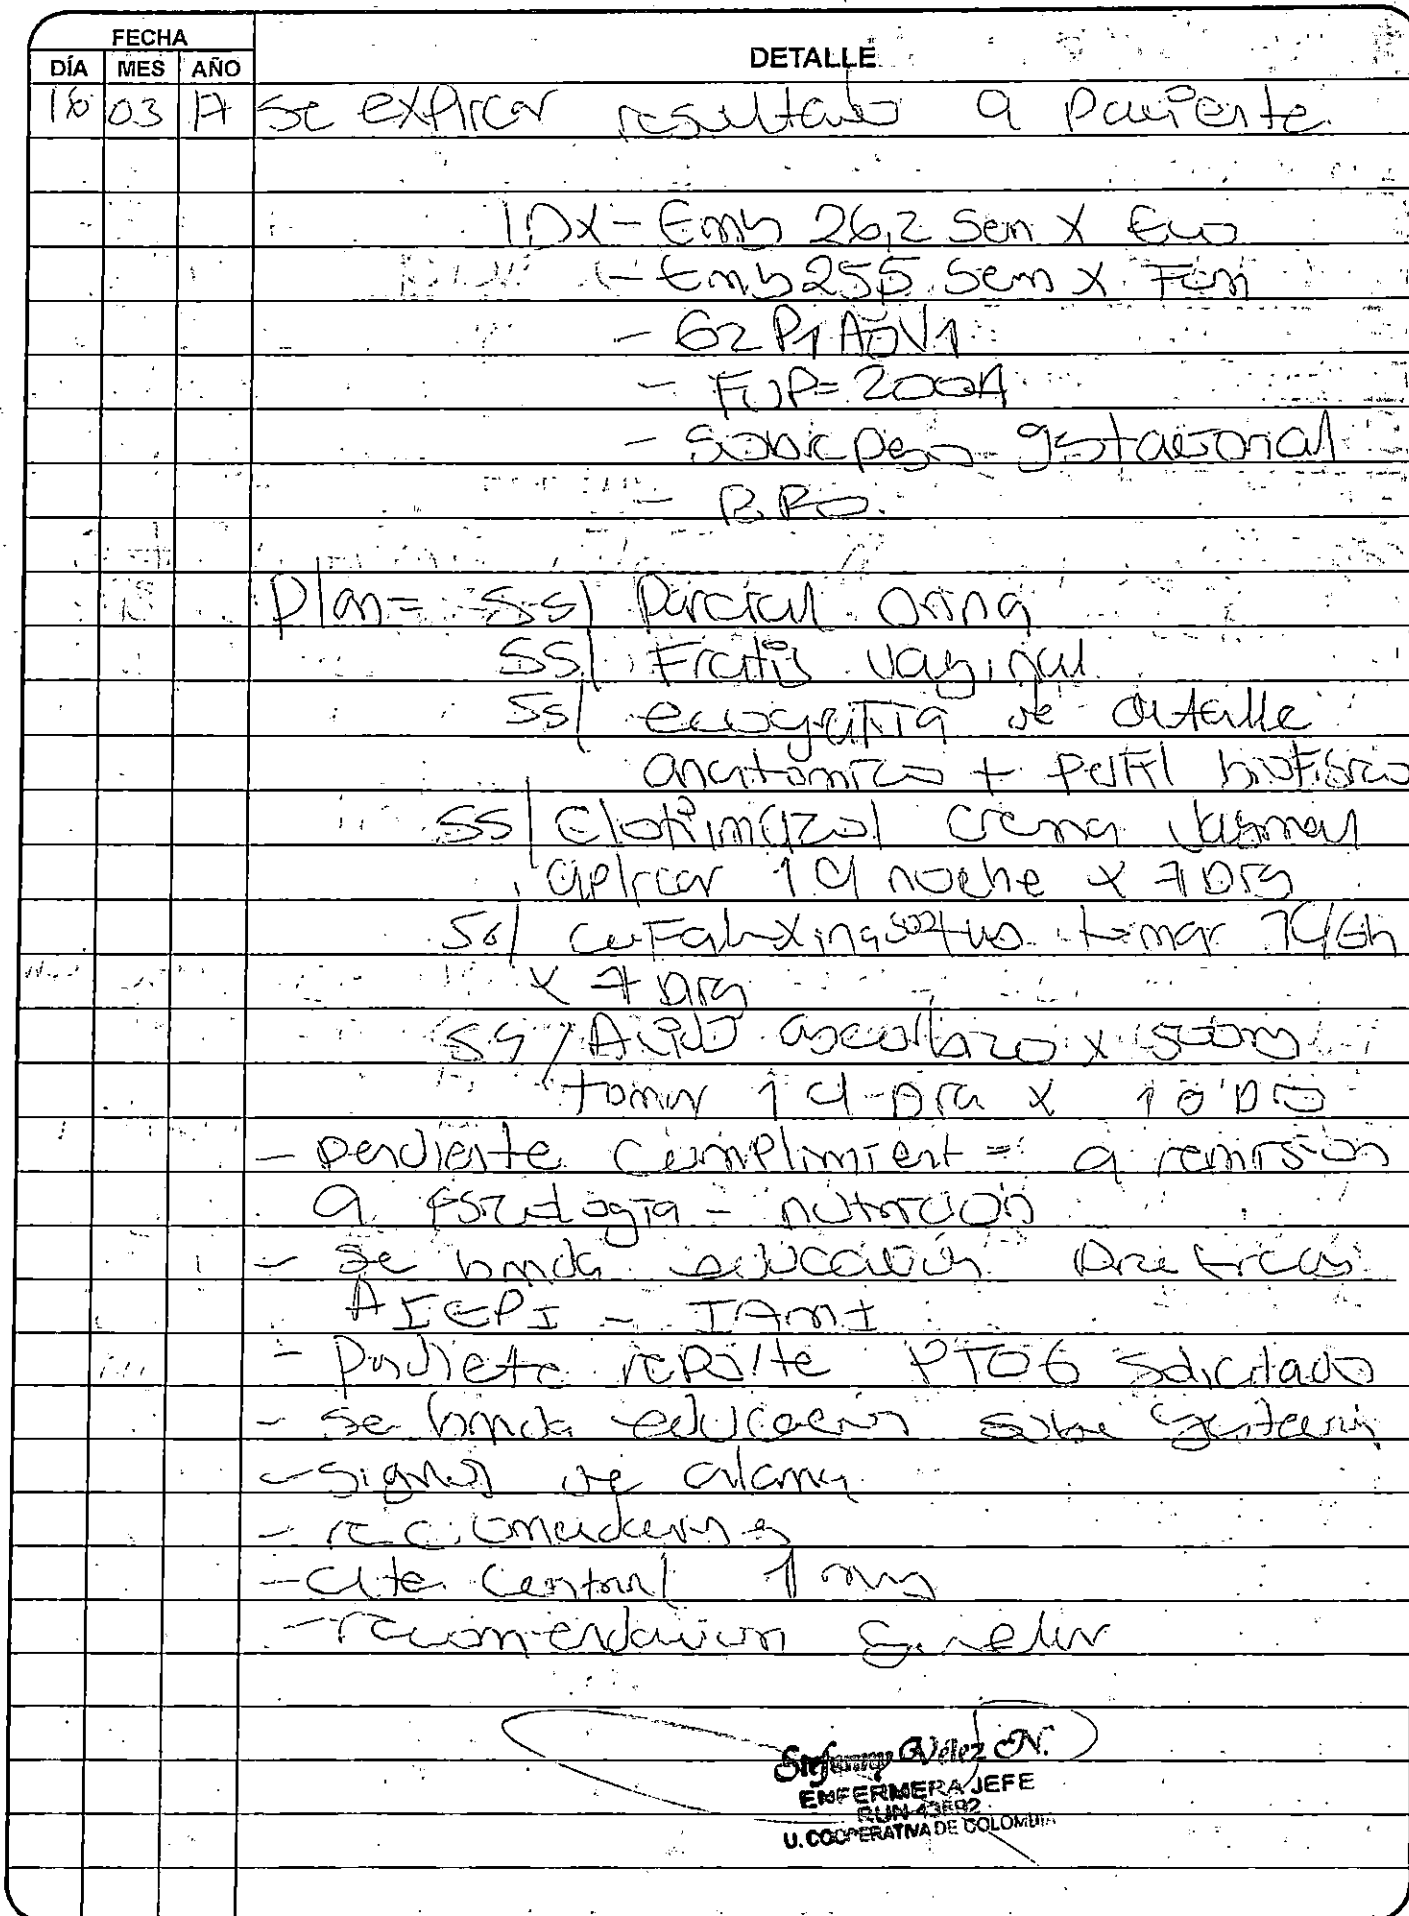 FECHA
DÍA MES AÑO DETALLE
16 03 17 se explica resultado a paciente
IDx - Emb 26,2 sem x Eco
- Emb 25,5 sem x FUM
- G2 P1 A0 V1
- FUP= 2007
- Sobrepeso gestacional
- BRO.
Plan= SS/ Parcial orina
SS/ Frotis vaginal
SS/ ecografia de detalle
anatomico + perfil biofisico
SS/ Clotrimazol crema vaginal
aplicar 1 c/ noche x 7 Dias
SS/ cefalexina tomar
x 7 Dias
SS/ Acido ascorbico x 500mg
tomar 1 c/ Dia x 10 Dias
- pendiente cumplimiento a remision
a - nutricion
- se brinda educacion practicas
AIEPI - IAMI
- pendiente reporte PTOG solicitado
- se brinda educacion sobre gestacion
- signos de alarma
- recomendaciones
- cita control 1 mes
- recomendacion
Vélez N.
ENFERMERA JEFE
RUN
U. COOPERATIVA DE COLOMBIA